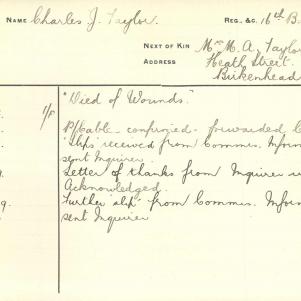 NAME Charles J. Taylor. REG., &C. 16th B
NEXT OF KIN Mrs M. A. Taylo
ADDRESS Heath Street.
Birkenhead
1/8 "Died of Wounds."
P/Cable - confirmed - forwarded
"Slips received from Commis. Inform
sent Inquirers
Letter of thanks from Inquirers
Acknowledged.
9. Further slip from Commis. Inform
sent Inquirer